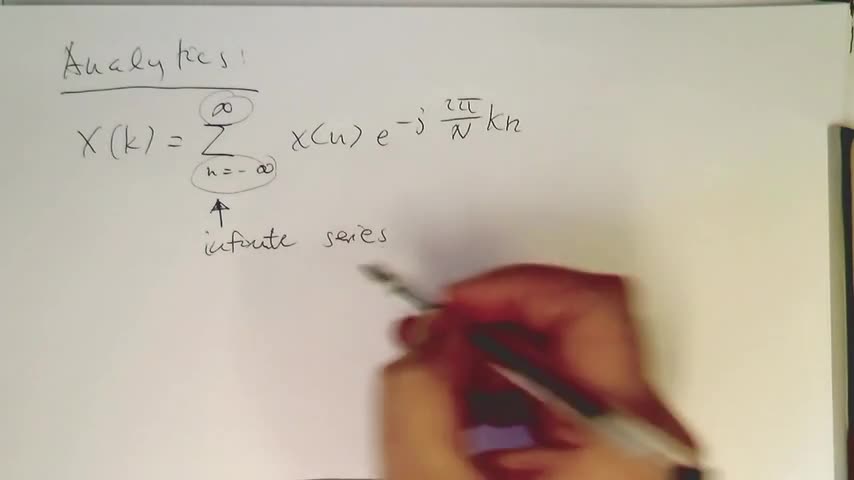 Analytics:
X(k) = ∞ Σ n=-∞ x(n) e^{-j 2π/N kn}
↑
infinite series